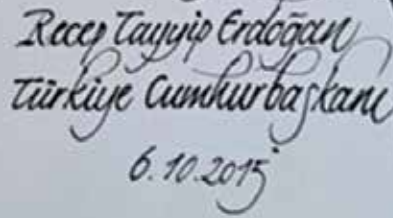 Recep Tayyip Erdoğan
Türkiye Cumhurbaşkanı
6.10.2015